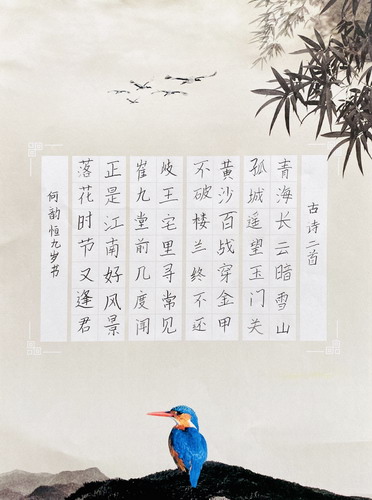 古诗二首
青海长云暗雪山
孤城遥望玉门关
黄沙百战穿金甲
不破楼兰终不还
岐王宅里寻常见
崔九堂前几度闻
正是江南好风景
落花时节又逢君
何韵恒九岁书